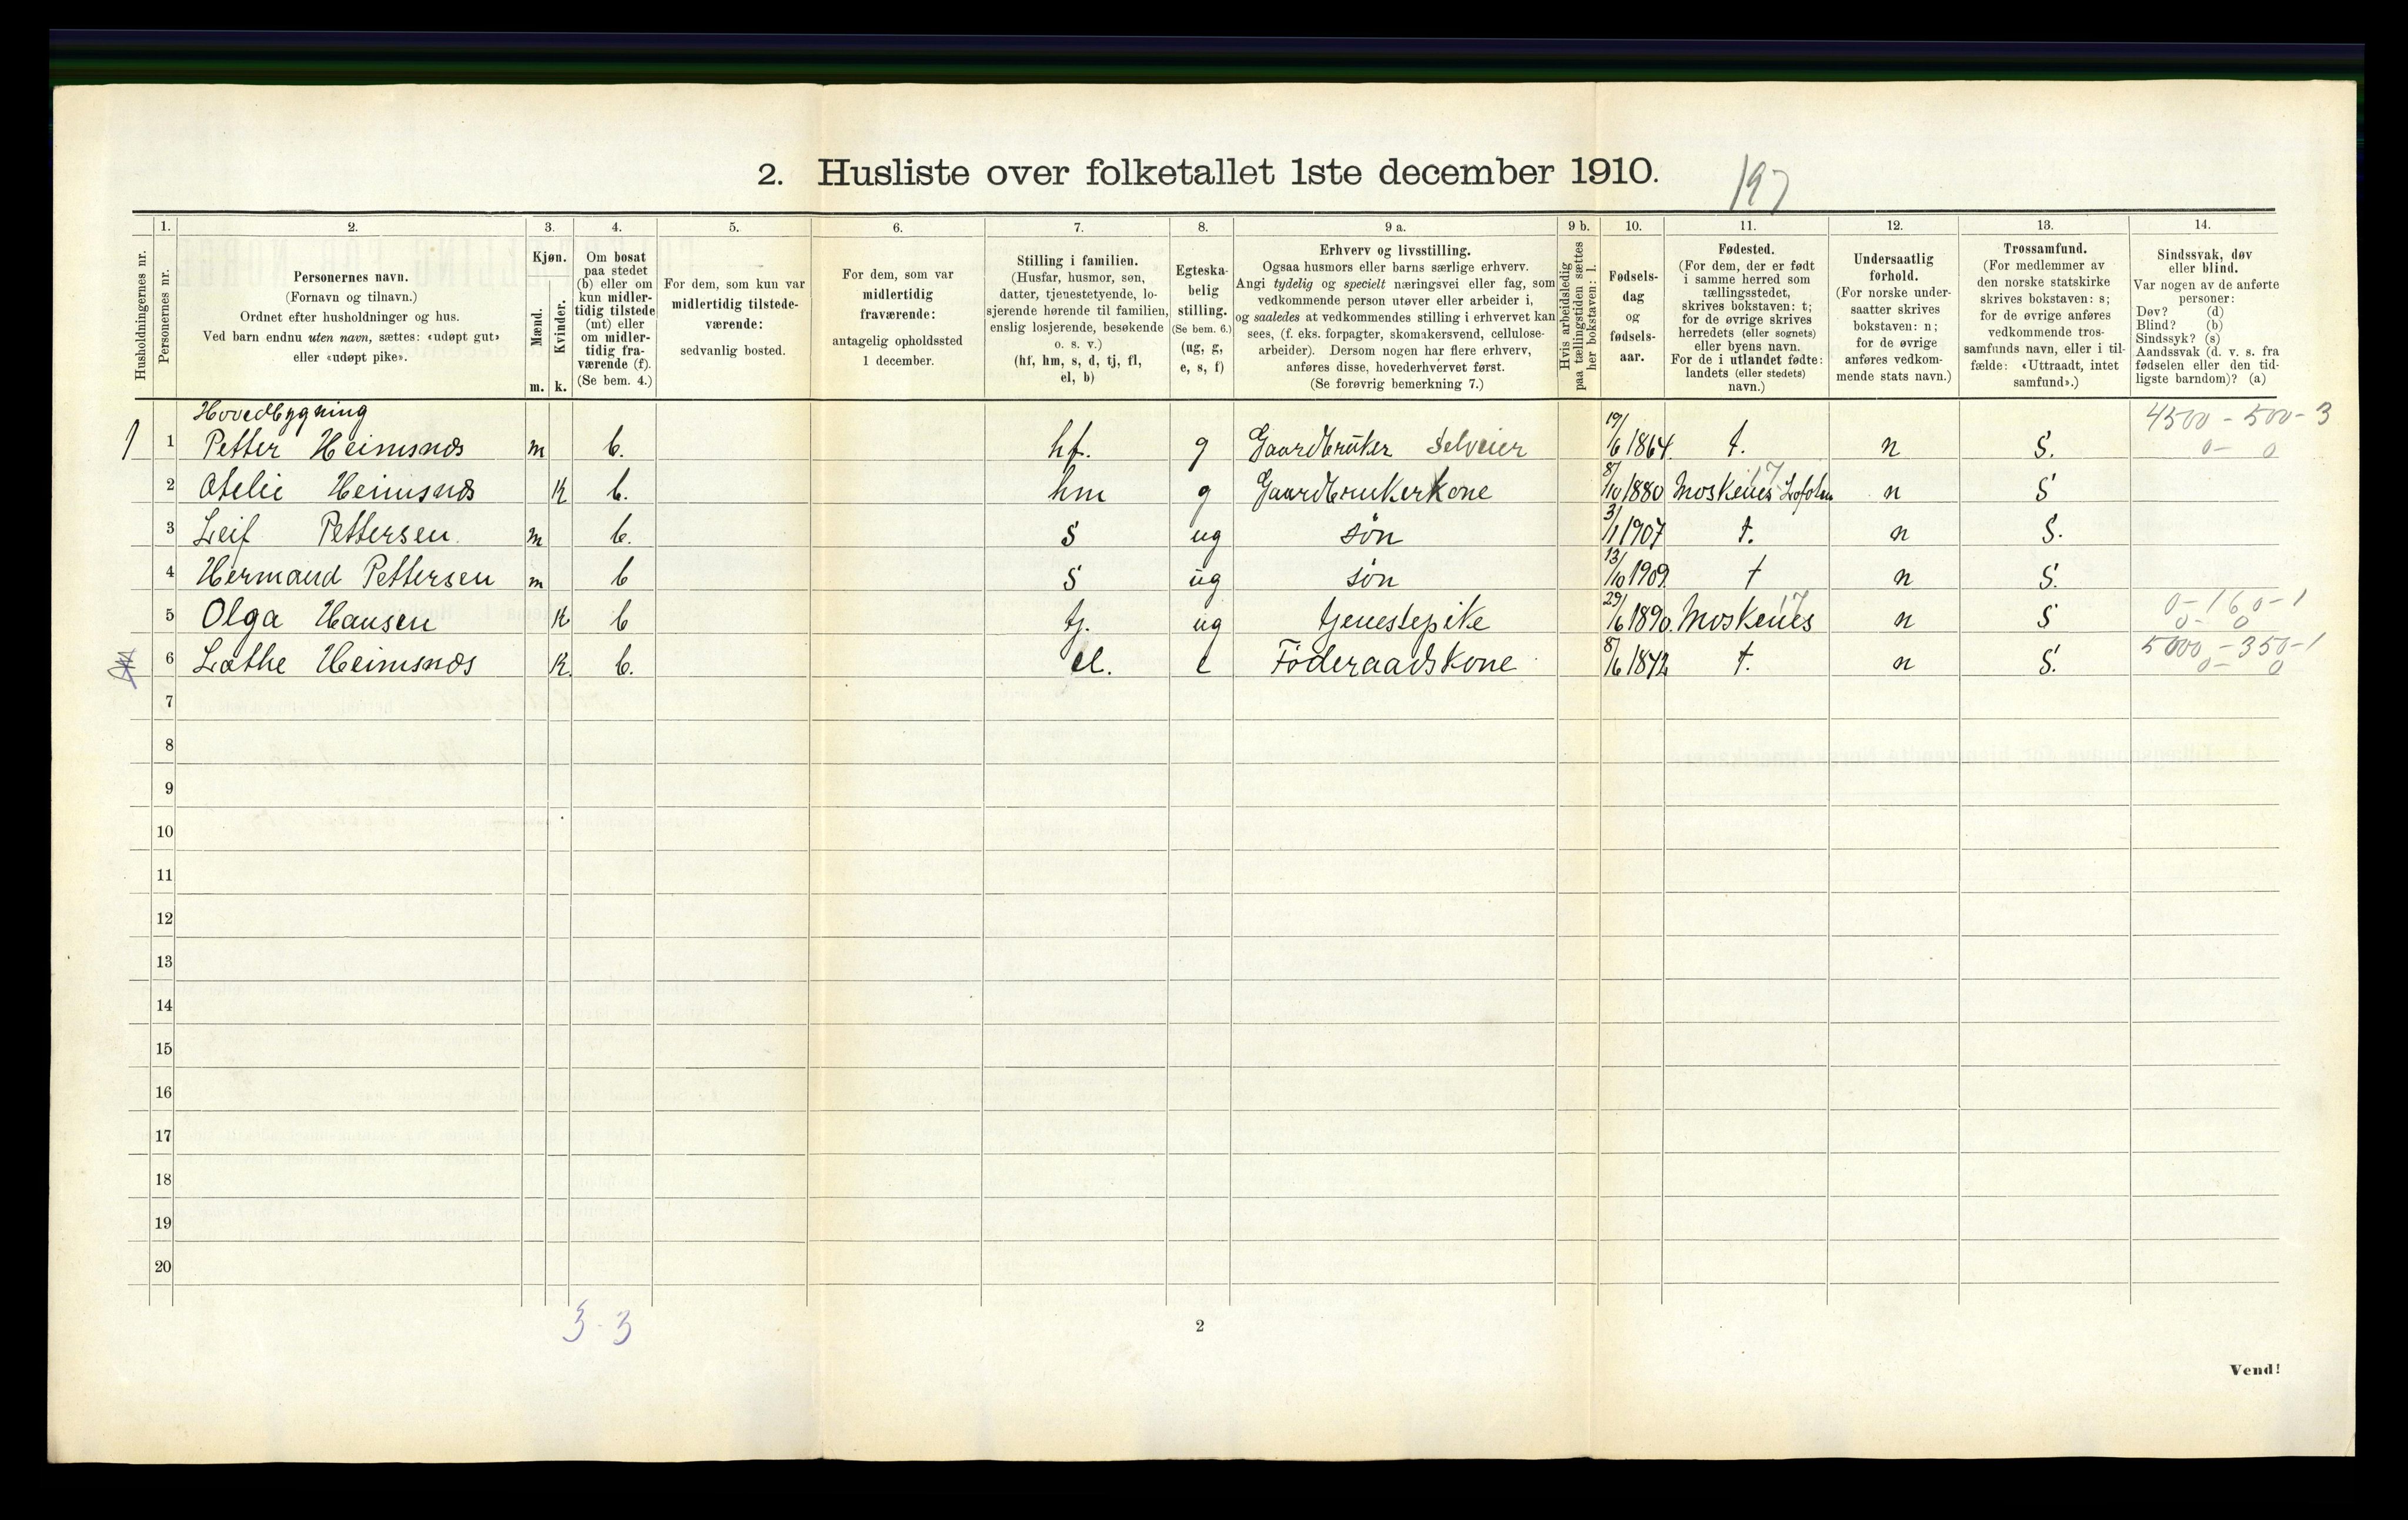 2. Husliste over folketallet 1ste december 1910.
197
Husholdningernes nr.
1.
Personernes nr.
2.
Personernes navn.
(Fornavn og tilnavn.)
Ordnet efter husholdninger og hus.
Ved barn endnu uten navn, sættes: «udøpt gut»
eller «udøpt pike».
3.
Kjøn.
Mænd.
Kvinder.
m. k.
4.
Om bosat
paa stedet
(b) eller om
kun midler-
tidig tilstede
(mt) eller
om midler-
tidig fra-
værende (f).
(Se bem. 4.)
5.
For dem, som kun var
midlertidig tilstede-
værende:
sedvanlig bosted.
6.
For dem, som var
midlertidig
fraværende:
antagelig opholdssted
1 december.
7.
Stilling i familien.
(Husfar, husmor, søn,
datter, tjenestetyende, lo-
sjerende hørende til familien,
enslig losjerende, besøkende
o. s. v.)
(hf, hm, s, d, tj, fl,
el, b)
8.
Egteska-
belig
stilling.
(Se bem. 6.)
(ug, g,
e, s, f)
9 a.
Erhverv og livsstilling.
Ogsaa husmors eller barns særlige erhverv.
Angi tydelig og specielt næringsvei eller fag, som
vedkommende person utøver eller arbeider i,
og saaledes at vedkommendes stilling i erhvervet kan
sees, (f. eks. forpagter, skomakersvend, cellulose-
arbeider). Dersom nogen har flere erhverv,
anføres disse, hovederhvervet først.
(Se forøvrig bemerkning 7.)
9 b.
Hvis arbeidsledig
paa tællingstiden sættes
her bokstaven: l.
10.
Fødsels-
dag
og
fødsels-
aar.
11.
Fødested.
(For dem, der er født
i samme herred som
tællingsstedet,
skrives bokstaven: t;
for de øvrige skrives
herredets (eller sognets)
eller byens navn.
For de i utlandet fødte:
landets (eller stedets)
navn.)
12.
Undersaatlig
forhold.
(For norske under-
saatter skrives
bokstaven: n;
for de øvrige
anføres vedkom-
mende stats navn.)
13.
Trossamfund.
(For medlemmer av
den norske statskirke
skrives bokstaven: s;
for de øvrige anføres
vedkommende tros-
samfunds navn, eller i til-
fælde: «Uttraadt, intet
samfund».)
14.
Sindssvak, døv
eller blind.
Var nogen av de anførte
personer:
Døv? (d)
Blind? (b)
Sindssyk? (s)
Aandssvak (d. v. s. fra
fødselen eller den tid-
ligste barndom)? (a)
Hovedbygning
4500 - 500 - 3
1 1 Petter Heimsnæs m b. hf. g Gaardbruker Selveier 19/6 1864. t. n S. 0 - 0
17
2 Otelie Heimsnæs K b. hm g Gaardbrukerkone 8/10 1880 Moskenes Lofoten n S
3 Leif Pettersen. m b. s ug søn 3/1 1907 t. n S.
4 Hermand Pettersen m b s ug søn 13/10 1909. t n S.
17 0 - 160 - 1
5 Olga Hansen K b tj. ug tjenestepike 29/6 1890. Moskenes n S 0 - 0
5000 - 350 - 1
6 Lothe Heimsnæs K. b. el. e Føderaadskone 8/6 1842 t. n S. 0 - 0
7
8
9
10
11
12
13
14
15
16
17
18
19
20
3 - 3
2
Vend!